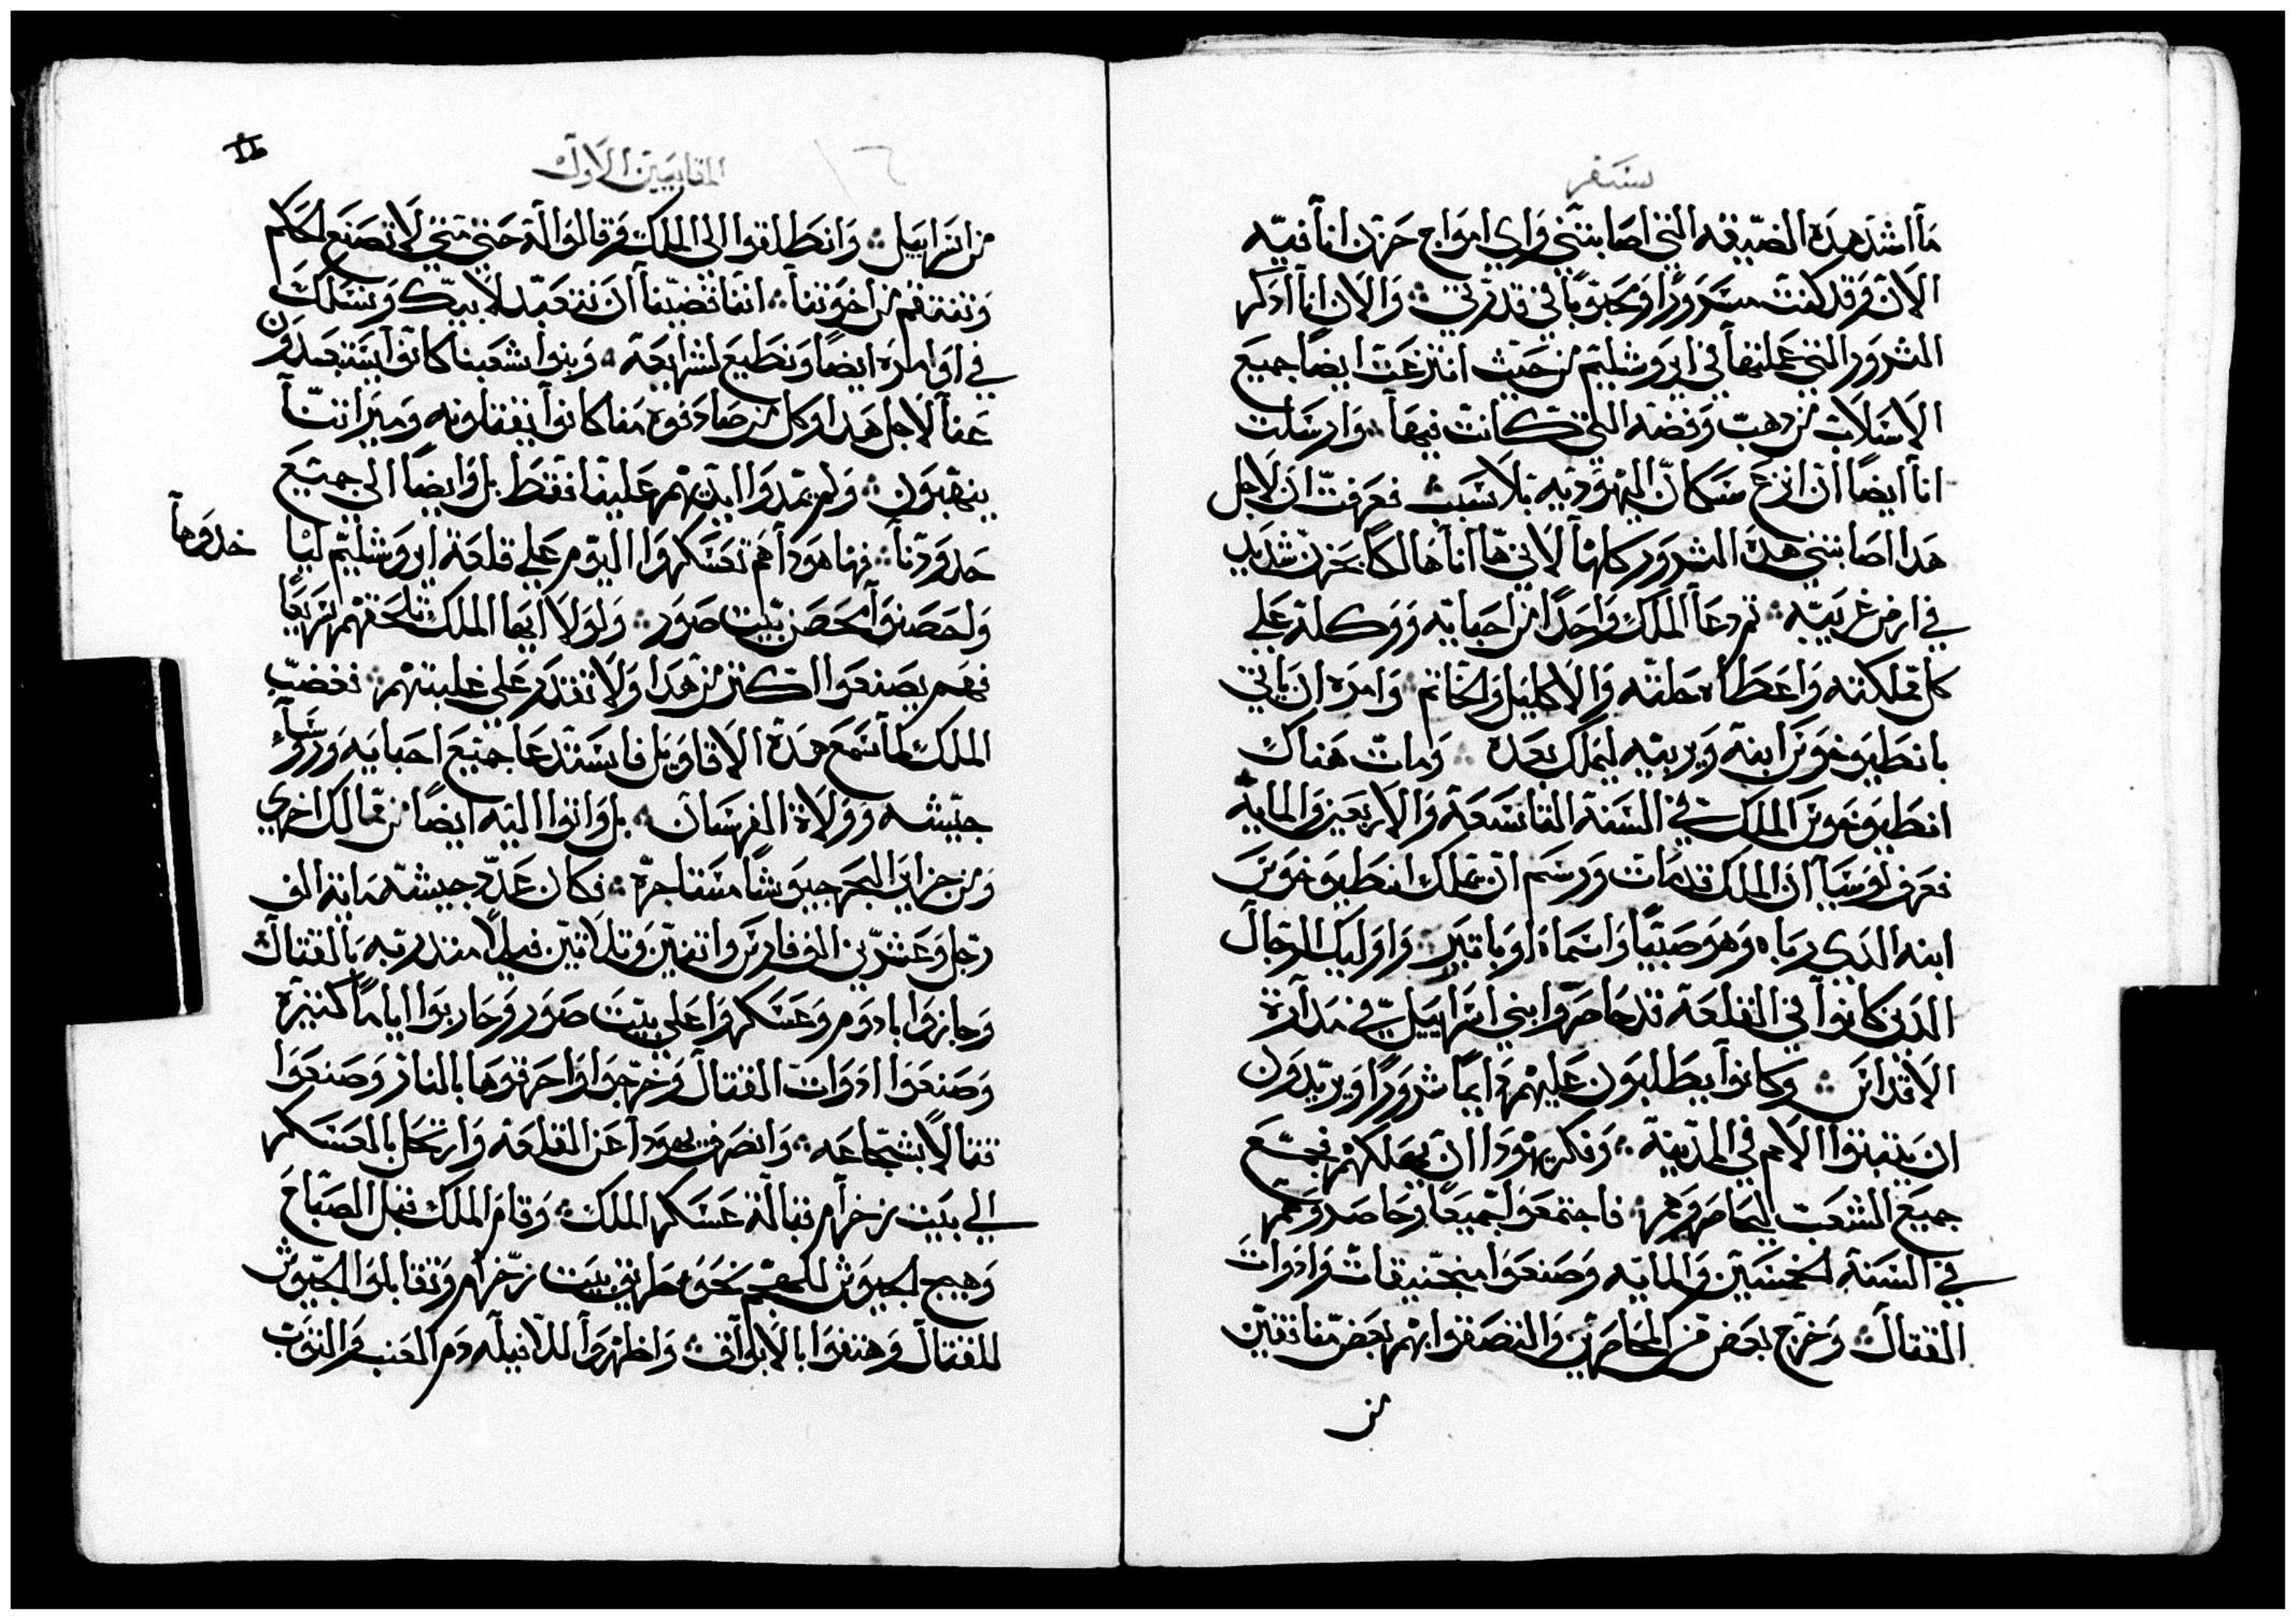 سفر
ما اشد هده الضيقه التي اصابتني واي امواج حزن انا فيه
الان فرقد كنت مسرورًا ومحبوبًا في قدرتي ۞ والان انا ادكر
الشرور التي عملتها في ايروشليم من حيث انتزعت ايضًا جميع
الاسلاب من دهب وفضه التي كانت فيها ۞ وارسلت
انا ايضًا ان انزع سكان اليهوديه بلا سبب ۞ فعرفت ان لاجل
هدا اصابتني هده الشرور كلها لاني ها انا هالكًا بحزن شديد
في ارض غريبه ۞ تم دعا الملك واحدًا من احبايه ووكله علي
كل مملكته واعطاه حلته والاكليل والخاتم ۞ وامره ان ياتي
بانطيوخوس ابنه ويربيه ليملك بعده ۞ ومات هناك
انطيوخوس الملك في السنة التاسعة والاربعين والمايه
فعرف لوسيا ان الملك قد مات ورسم ان يملك انطيوخوس
ابنه الدي رباه وهو صبيًا واسماه اوباتير ۞ واوليك الرجال
الدين كانوا في القلعة قد حاصروا بني اسراييل في مدارة
الاقداس ۞ وكانوا يطلبون عليهم دايمًا شرورًا ويريدون
ان يثبتوا الامم في المدينة ۞ وفكر يهودا ان يهلكهم فجمع
جميع الشعب ليحاصروهم ۞ فاجتمعوا جميعًا وحاصروهم
في السنة الخمسين والمايه وصنعوا منجنيقات وادوات
القتال ۞ وخرج بعض من المحاصرين والتصقوا بهم بعض منافقين
من
المقابيين الاول
من اسراييل ۞ وانطلقوا الى الملك فرقالوا له حتي متي لا تصنع الحكم
وتنتقم من اخوتنا ۞ اننا قضينا ان نتعبد لابيك ونسلك
في اوامره ايضًا ونطيع لشرايعه ۞ وبنوا شعبنا كانوا يستبعدون
عنا لاجل هدا وكل من صادفوه منا كانوا يقتلونه وميراتنا
ينهبون ۞ ولم يمدوا ايديهم علينا فقط بل وايضًا الي جميع
حدودنا ۞ فها هودا هم تعسكروا اليوم علي قلعة ايروشليم لياخدوها
ولحصنوا محصن بيت صور ۞ ولولا ايها الملك تلحقهم سريعًا
فهم يصنعوا اكتر من هدا ولا تقدر علي غلبتهم ۞ فغضب
الملك لما سمع هده الاقاويل فاستدعا جميع احبايه وروسآ
جيشه وولاة الفرسان ۞ بل واتوا اليه ايضًا من ممالك اخري
ومن جزاير البحر جيوشًا مستاجرة ۞ فكان عدد جيشه ماية الف
رجل وعشرين الف فارس واتنين وتلاتين فيلًا متدربه بالقتال
وجازوا بادوم وعسكروا علي بيت صور وحاربوا ايامًا كتيرة
وصنعوا ادوات القتال وخرجوا واحرقوها بالنار وصنعوا
قتالًا بشجاعه ۞ وانصرف يهودا عن القلعة وارتحل بالعسكر
الي بيت زخرام قبالة عسكر الملك ۞ وقام الملك قبل الصباح
وهيج الجيوش للهجم نحو طريق بيت زخرام وتقابلوا الجيوش
للقتال وهتفوا بالابواق ۞ واظهروا للافيلة دم العنب والتوت